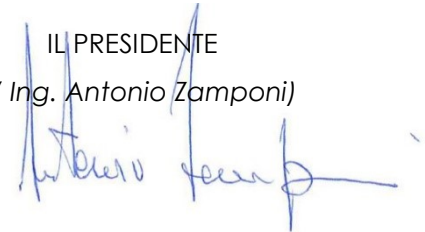 IL PRESIDENTE
Ing. Antonio Zamponi)
Antonio Zamponi